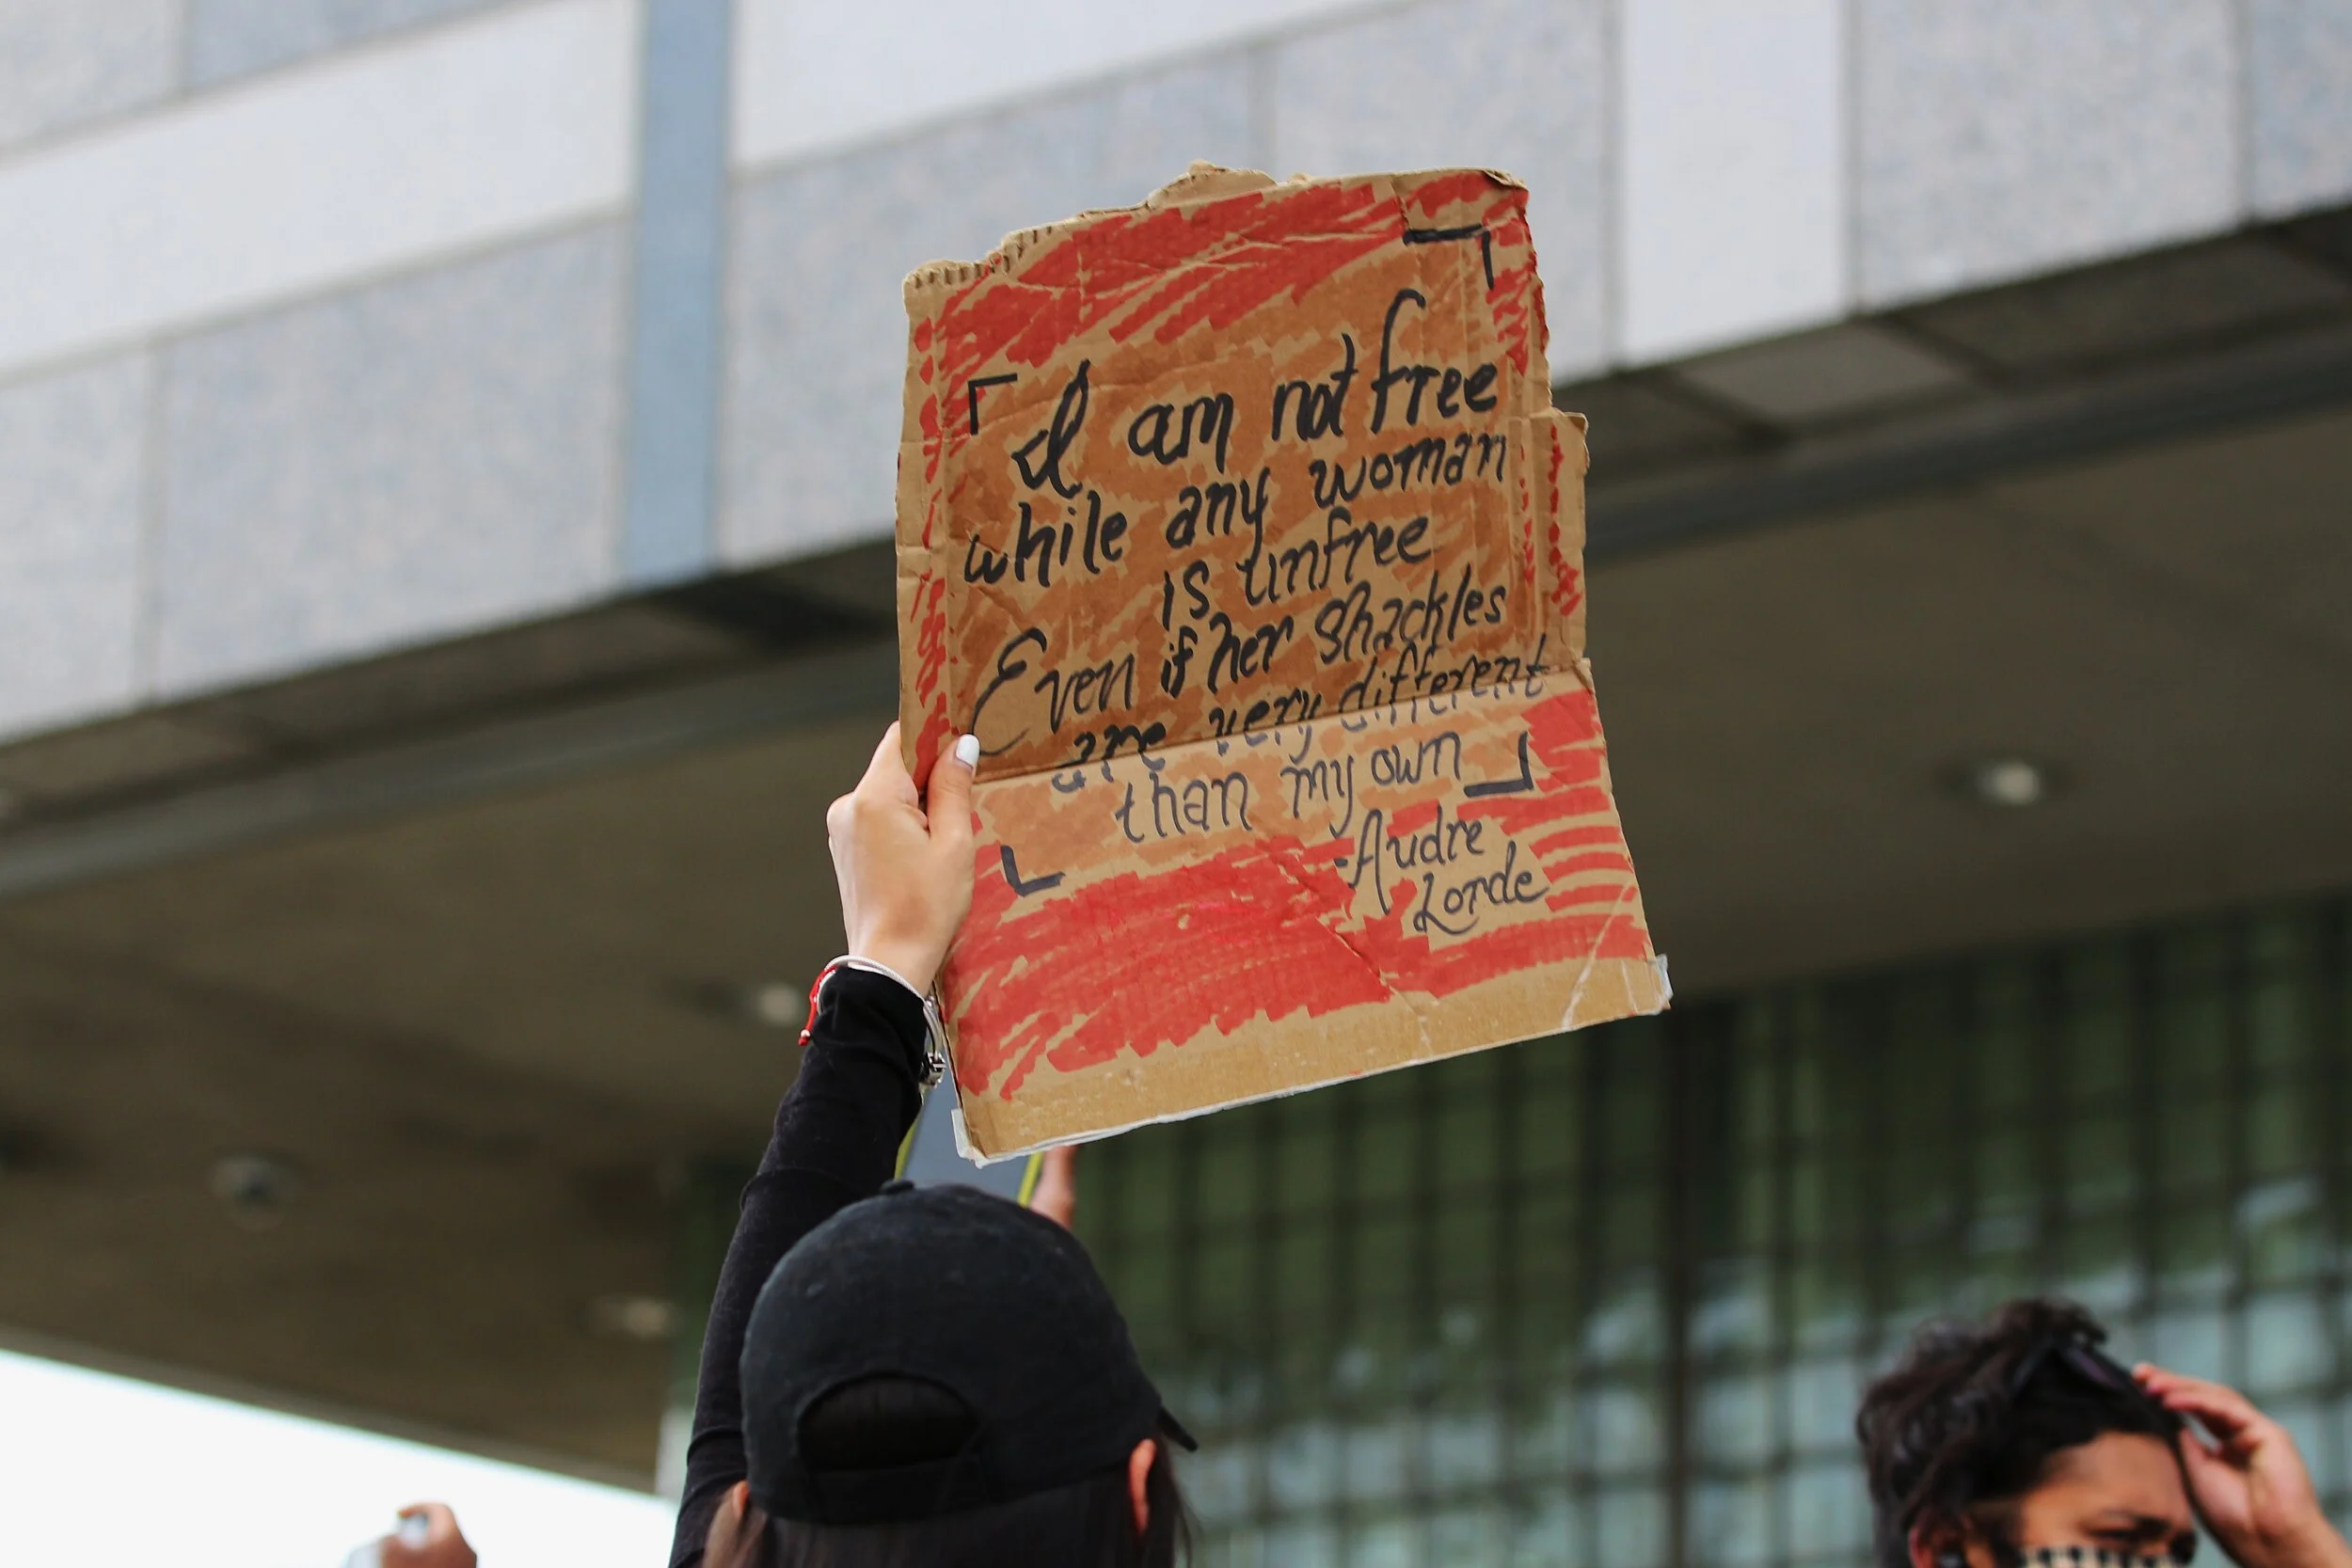 I am not free
while any woman
is unfree
Even if her shackles
are very different
than my own
-Audre
Lorde